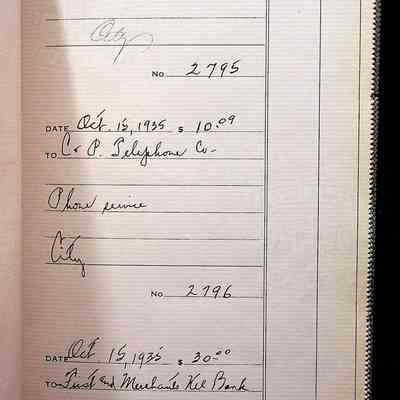 City
No. 2795
DATE Oct. 15, 1935 $ 10.09
TO C & P. Telephone Co-
Phone service
City
No. 2796
DATE Oct. 15, 1935 $ 30.00
TO First and Merchants Bank